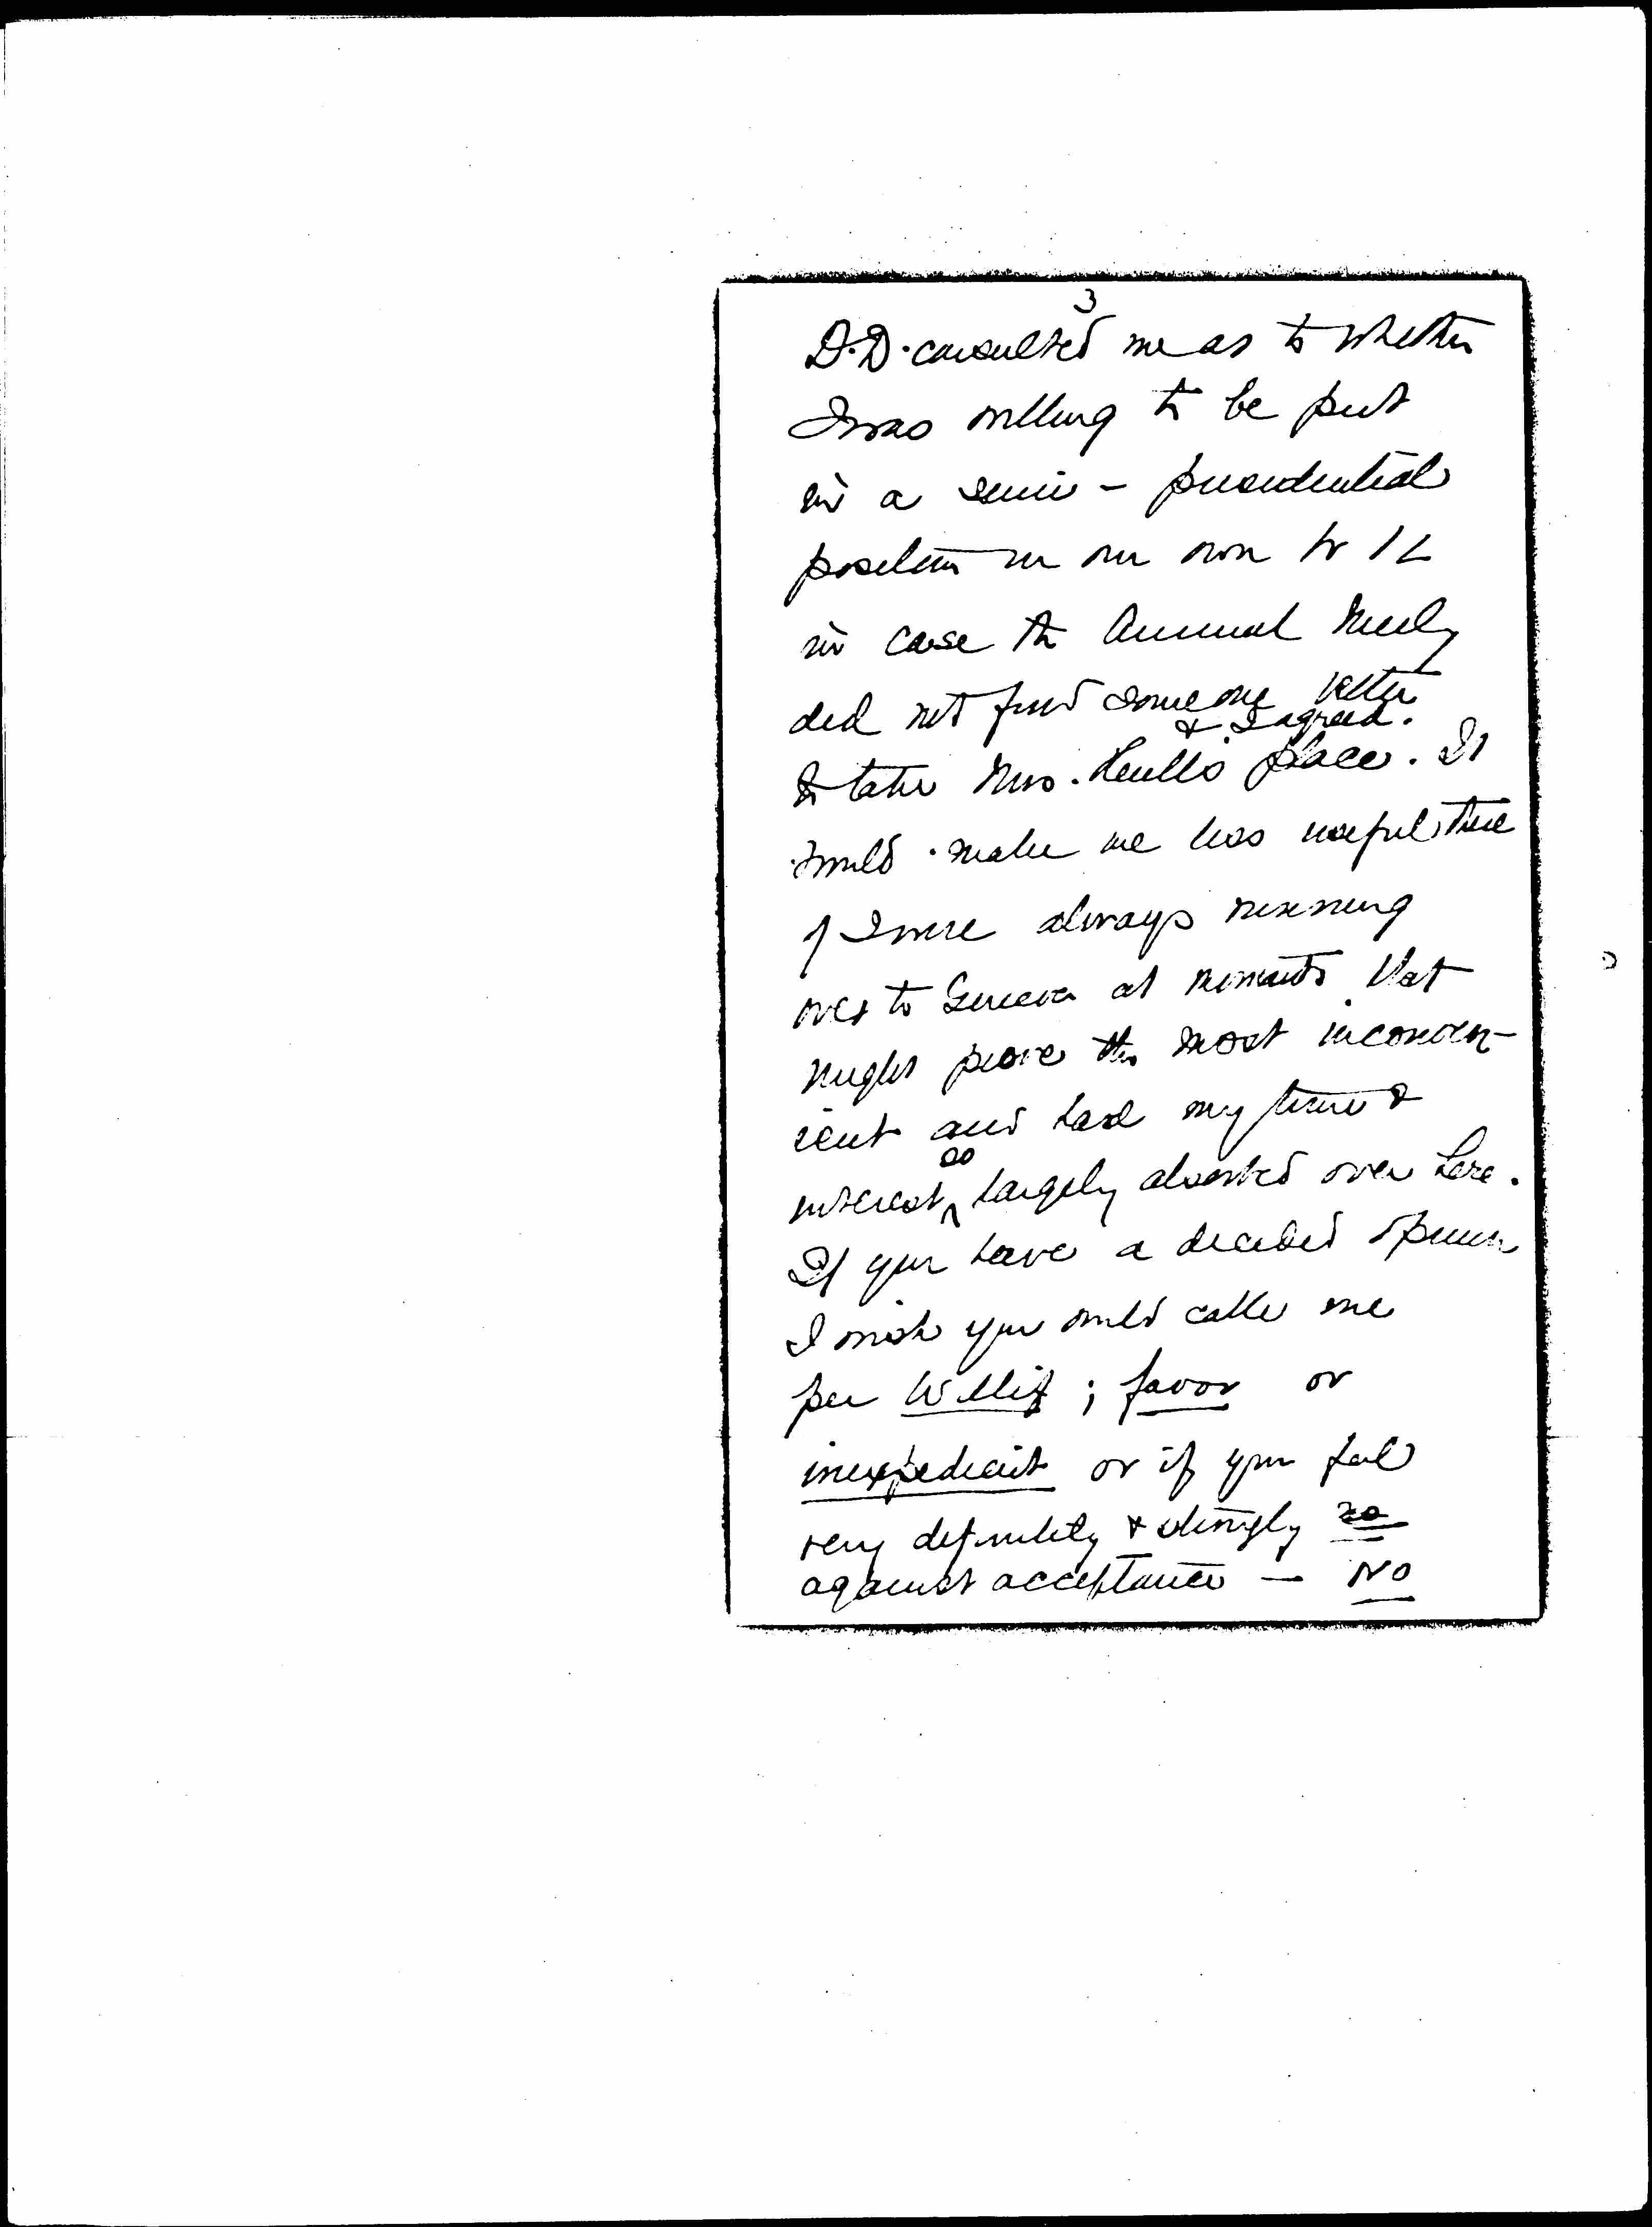 3
D.D. consulted me as to whether
I was willing to be put
in a semi - presidential
position in our own W I L
in case the Annual Meetg
did not find someone better
& I agreed.
to take Mrs. Hull's place. It
would make me less useful there
if I were always running
over to Geneva at moments that
might prove the most inconven-
ient and had my time &
so
interest largely absorbed over here.
If you have a decided opinion
I wish you would cable me
per Willif ; favor or
inexpedient or if you feel
very definitely & strongly
against acceptance — No